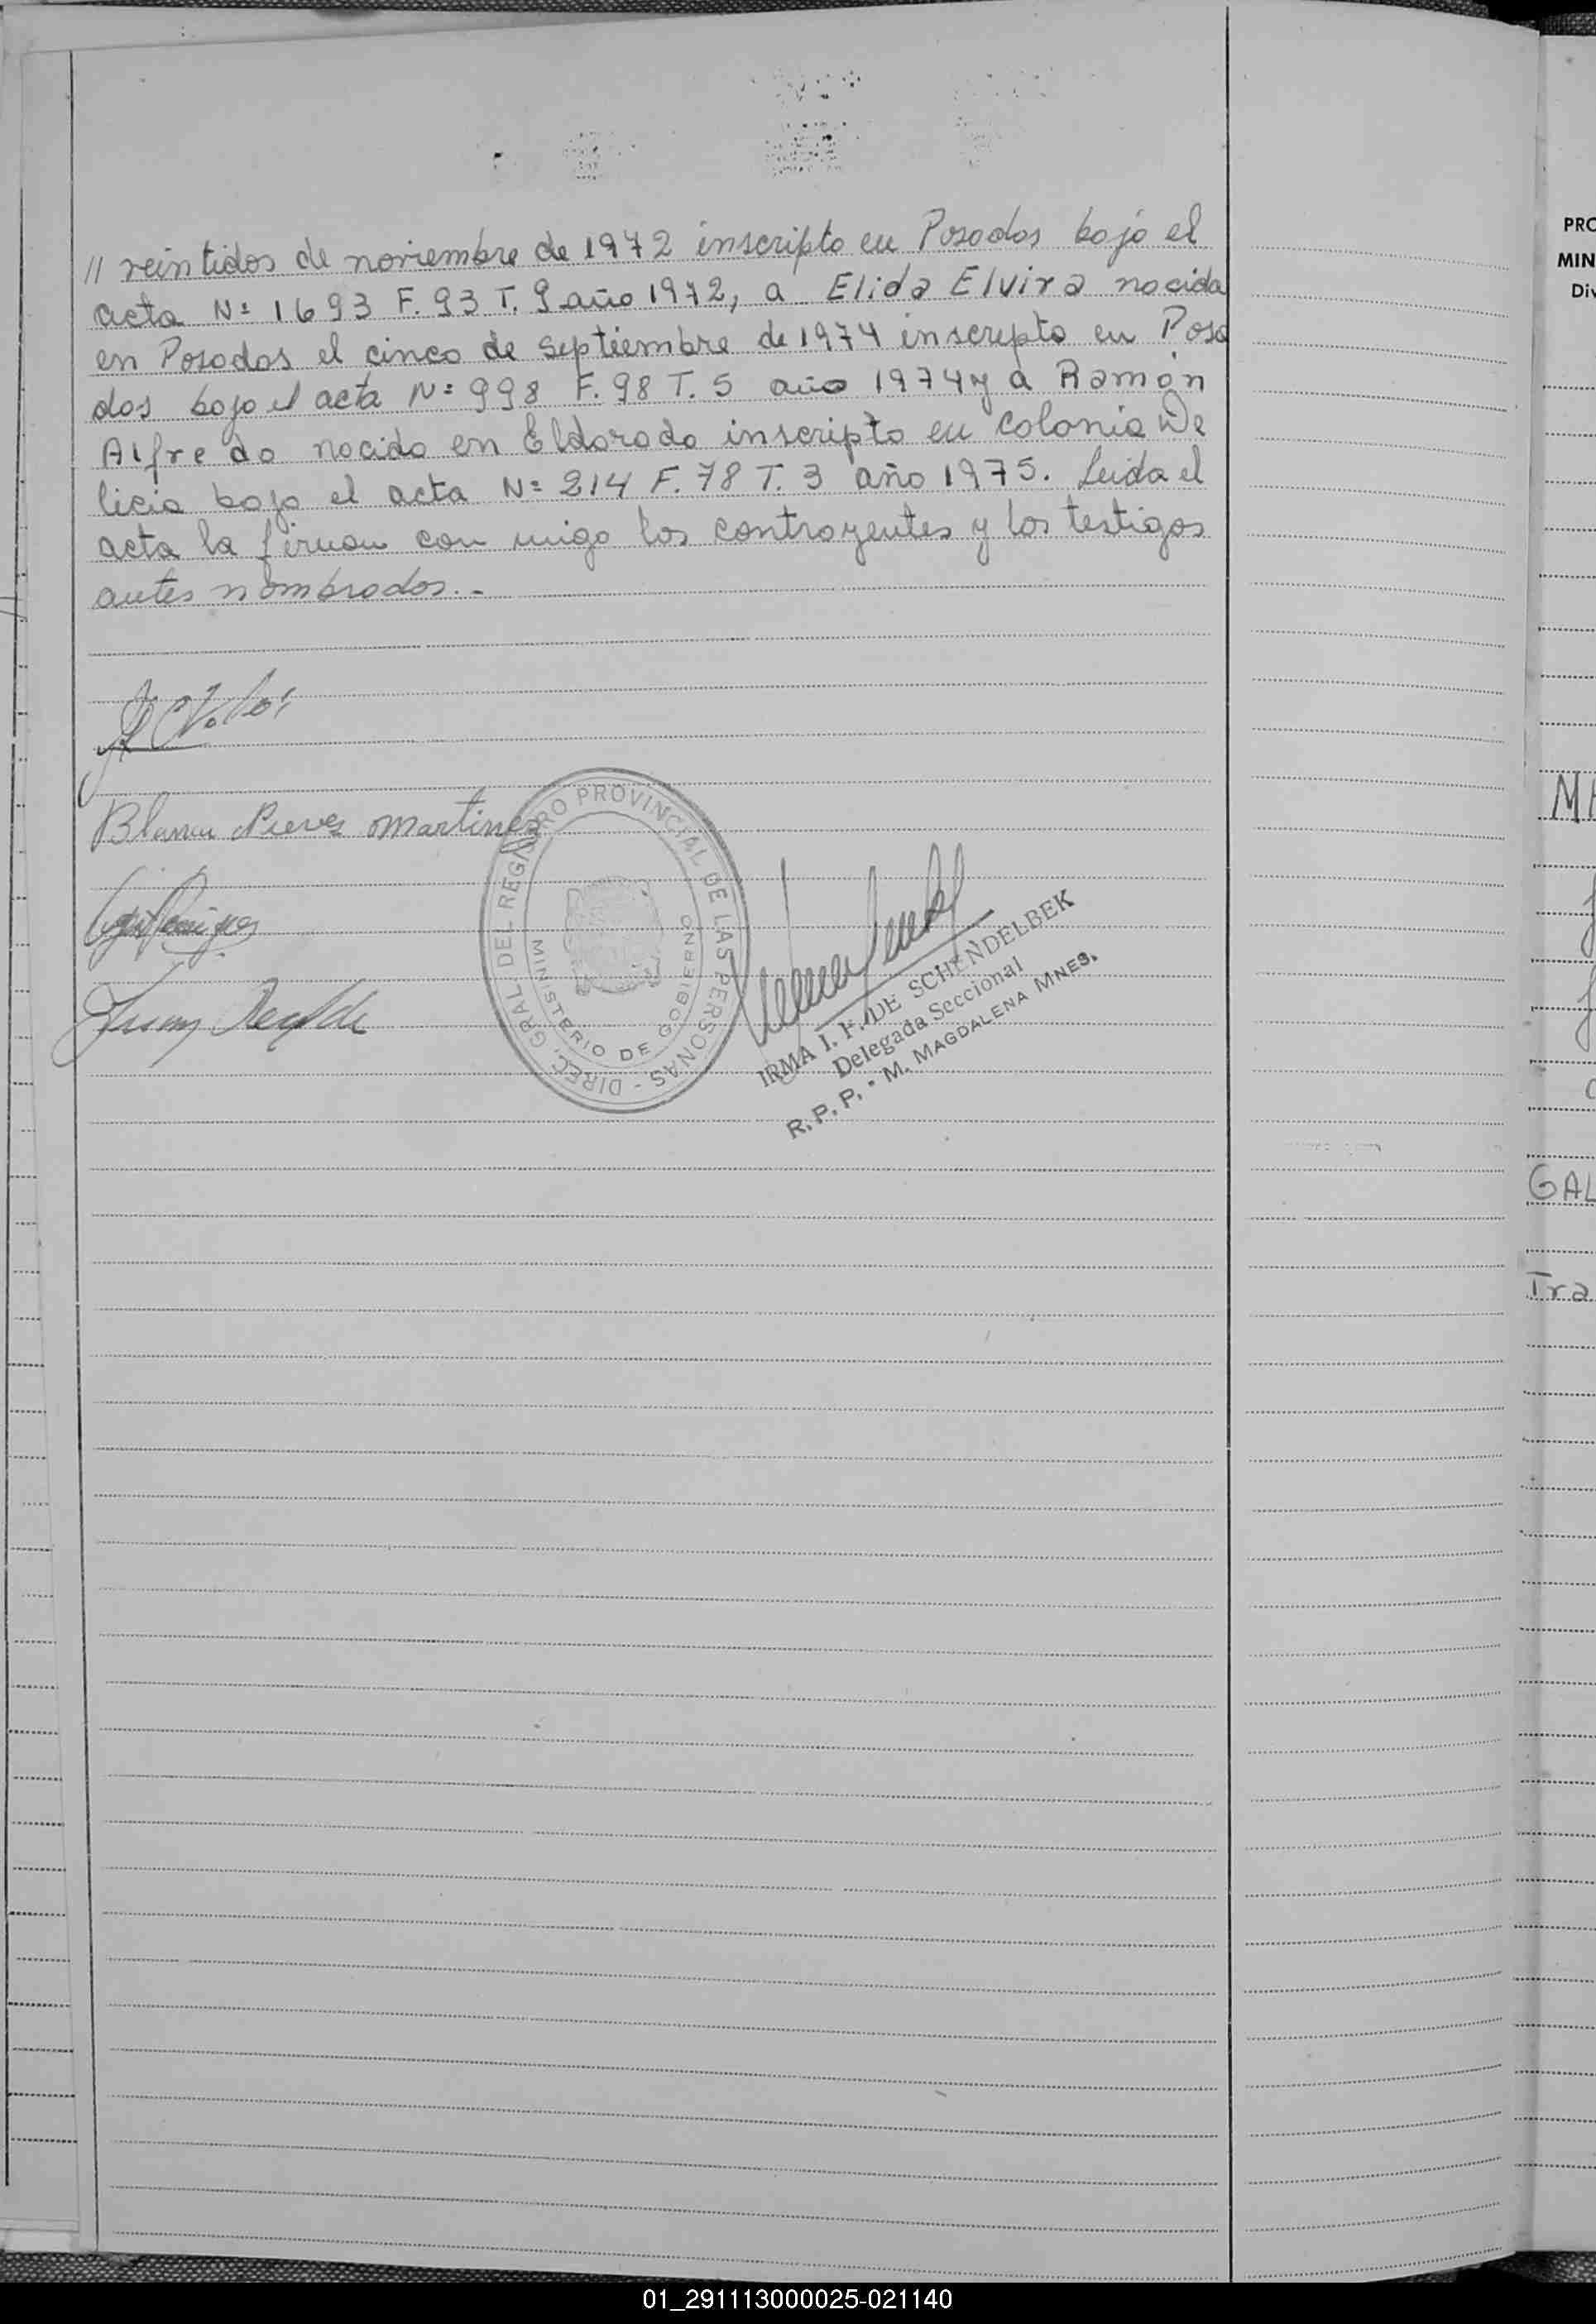 // veintidos de noviembre de 1972 inscripto en Posadas bajo el
acta Nº 1693 F. 93 T. 9 año 1972, a Elida Elvira nacida
en Posadas el cinco de septiembre de 1974 inscripta en Posa
das bajo el acta Nº 998 F. 98 T. 5 año 1974 y a Ramón
Alfredo nacido en Eldorado inscripto en Colonia De
licia bajo el acta Nº 214 F. 78 T. 3 año 1975. Leida el
acta la firman con migo los contrayentes y los testigos
antes nombrados. -
Blanca Nieves Martinez
DIREC. GRAL DEL REGISTRO PROVINCIAL DE LAS PERSONAS -
MINISTERIO DE GOBIERNO
IRMA I. F. DE SCHENDELBEK
Delegada Seccional
R. P. P. - M. MAGDALENA MNES.
PRO
MIN
Div
GAL
Tra
01_291113000025-021140